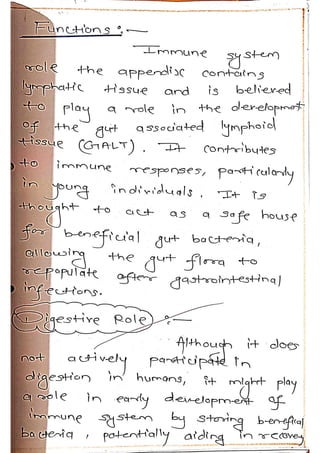 Functions :-
Immune system
role the appendix contains
lymphatic tissue and is believed
to play a role in the developmet
of the gut associated lymphoid
tissue (GALT). It contributes
to immune responses, particularly
in young individuals. It is
thought to act as a safe house
for beneficial gut bacteria,
allowing the gut flora to
repopulate after gastrointestinal
infections.
Digestive Role :-
Although it does
not actively participate in
digestion in humans, it might play
a role in early development of
immune system by storing beneficial
bacteria, potentially aiding in recovery